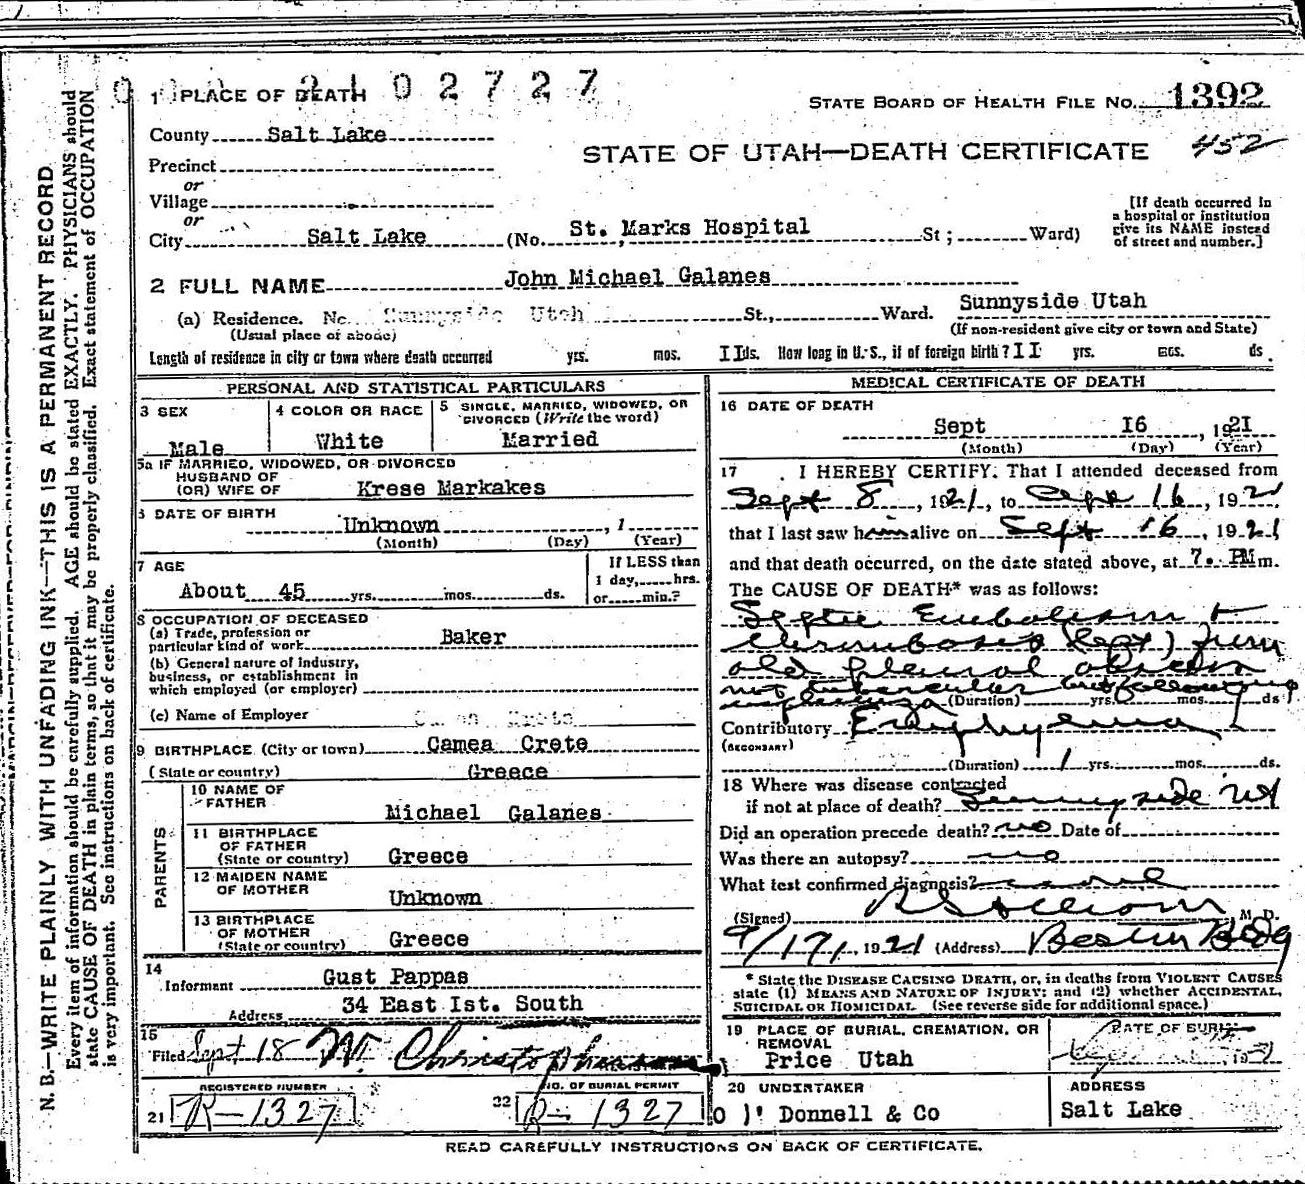 2 1 0 2 7 2 7
1 PLACE OF DEATH
STATE BOARD OF HEALTH FILE No. 1392
County Salt Lake
STATE OF UTAH—DEATH CERTIFICATE 452
Precinct
or
Village
or
City Salt Lake (No. St. Marks Hospital St; Ward)
[If death occurred in
a hospital or institution
give its NAME instead
of street and number.]
2 FULL NAME John Michael Galanes
(a) Residence. No. Sunnyside Utah St., Ward. Sunnyside Utah
(Usual place of abode) (If non-resident give city or town and State)
Length of residence in city or town where death occurred yrs. mos. II ds. How long in U.S., if of foreign birth? II yrs. mos. ds.
PERSONAL AND STATISTICAL PARTICULARS
3 SEX
Male
4 COLOR OR RACE
White
5 SINGLE, MARRIED, WIDOWED, OR
DIVORCED (Write the word)
Married
5a IF MARRIED, WIDOWED, OR DIVORCED
HUSBAND OF
(OR) WIFE OF Krese Markakes
6 DATE OF BIRTH
Unknown , 1
(Month) (Day) (Year)
7 AGE
About 45 yrs. mos. ds.
If LESS than
1 day, hrs.
or min.?
8 OCCUPATION OF DECEASED
(a) Trade, profession or
particular kind of work Baker
(b) General nature of industry,
business, or establishment in
which employed (or employer)
(c) Name of Employer
9 BIRTHPLACE (City or town) Camea Crete
(State or country) Greece
PARENTS
10 NAME OF
FATHER Michael Galanes
11 BIRTHPLACE
OF FATHER
(State or country) Greece
12 MAIDEN NAME
OF MOTHER Unknown
13 BIRTHPLACE
OF MOTHER
(State or country) Greece
14
Informant Gust Pappas
Address 34 East Ist. South
15
Filed Sept 18 W. Christopherson
REGISTERED NUMBER
21 R-1327
NO. OF BURIAL PERMIT
22 R-1327
MEDICAL CERTIFICATE OF DEATH
16 DATE OF DEATH
Sept I6 , 192I
(Month) (Day) (Year)
17 I HEREBY CERTIFY, That I attended deceased from
Sept 8, 1921, to Sept 16, 1921
that I last saw him alive on Sept 16, 1921
and that death occurred, on the date stated above, at 7. PM m.
The CAUSE OF DEATH* was as follows:
Septic Embolism +
thrombosis (Sept) from
old pleural abscess
not tubercular but following
influenza (Duration) yrs. mos. ds
Contributory Emphyema
(SECONDARY)
(Duration) 1 yrs. mos. ds.
18 Where was disease contracted
if not at place of death? Sunnyside Ut
Did an operation precede death? no Date of
Was there an autopsy? no
What test confirmed diagnosis?
(Signed) M. D.
9/17/, 1921 (Address) Bldg
* State the DISEASE CAUSING DEATH, or, in deaths from VIOLENT CAUSES
state (1) MEANS AND NATURE OF INJURY; and (2) whether ACCIDENTAL,
SUICIDAL OR HOMICIDAL. (See reverse side for additional space.)
19 PLACE OF BURIAL, CREMATION, OR
REMOVAL
Price Utah
DATE OF BURIAL
20 UNDERTAKER
O 'Donnell & Co
ADDRESS
Salt Lake
READ CAREFULLY INSTRUCTIONS ON BACK OF CERTIFICATE.
N. B.—WRITE PLAINLY WITH UNFADING INK—THIS IS A PERMANENT RECORD
Every item of information should be carefully supplied. AGE should be stated EXACTLY. PHYSICIANS should
state CAUSE OF DEATH in plain terms, so that it may be properly classified. Exact statement of OCCUPATION
is very important. See instructions on back of certificate.